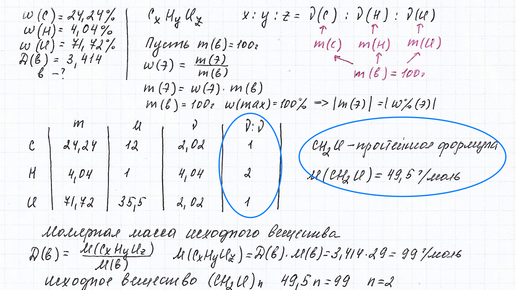 w(C) = 24,24%
w(H) = 4,04%
w(Cl) = 71,72%
D(в) = 3,414
в - ?
CxHyClz
Пусть m(в) = 100г
w(э) = m(э)/m(в)
m(э) = w(э) · m(в)
m(в) = 100г w(max) = 100% => |m(э)| = |w%(э)|
x : y : z = ν(C) : ν(H) : ν(Cl)
m(C) m(H) m(Cl)
m(в) = 100г
m M ν ν:ν
C 24,24 12 2,02 1
H 4,04 1 4,04 2
Cl 71,72 35,5 2,02 1
CH₂Cl - простейшая формула
M(CH₂Cl) = 49,5 г/моль
Молярная масса исходного вещества
D(в) = M(CxHyClz)/M(в) M(CxHyClz) = D(в) · M(в) = 3,414 · 29 = 99 г/моль
исходное вещество (CH₂Cl)n 49,5n = 99 n = 2